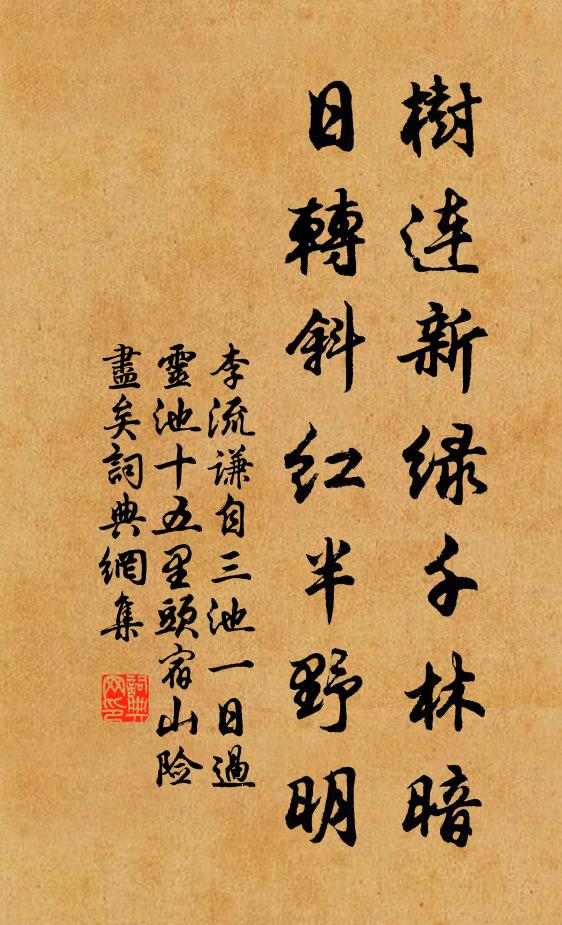 樹连新绿千林暗
日轉斜红半野明
李流谦自三池一日過
靈池十五里頭宿山险
盡矣詞典網集
詞典
网印